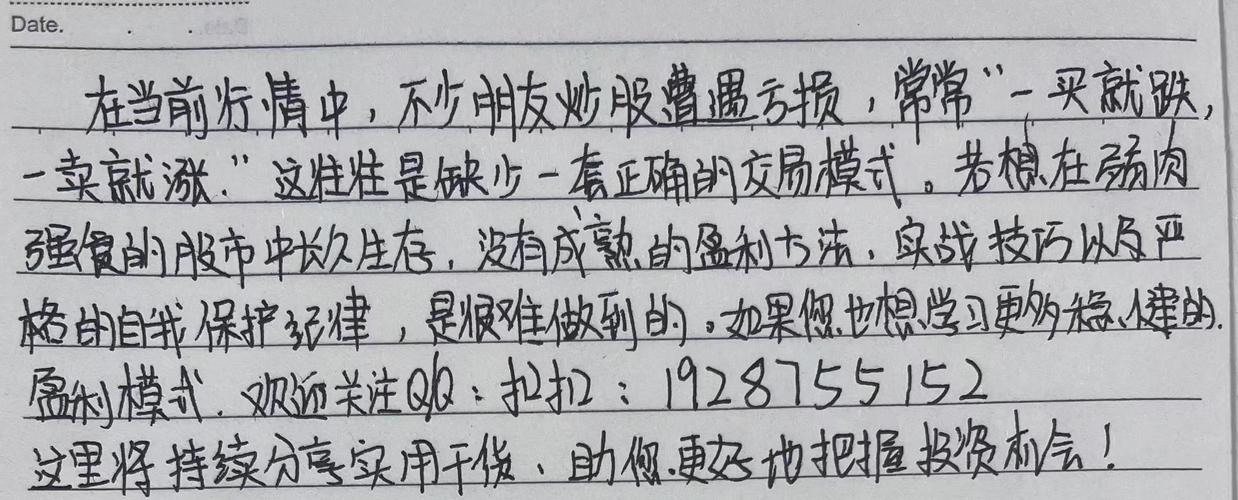 Date.
在当前行情中，不少朋友炒股遭遇亏损，常常“一买就跌，
一卖就涨.”这往往是缺少一套正确的交易模式。若想在弱肉
强食的股市中长久生存，没有成熟的盈利方法，实战技巧以及严
格的自我保护纪律，是很难做到的。如果您也想学习更多稳健的
盈利模式，欢迎关注QQ：扣扣：1928755152
这里将持续分享实用干货、助您更好地把握投资机会！